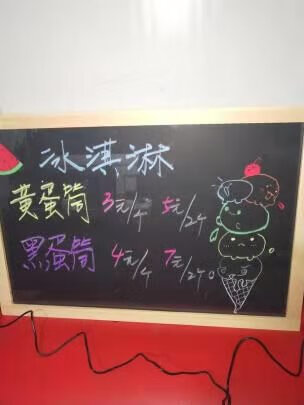 冰淇淋
黄蛋筒 3元/个 5元/2个
黑蛋筒 4元/个 7元/2个